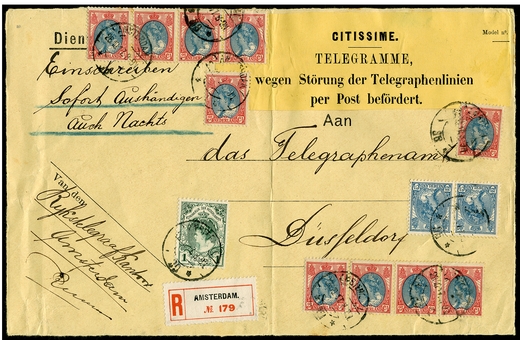 Dien
CITISSIME.
Model nº.
TELEGRAMME,
wegen Störung der Telegraphenlinien
per Post befördert.
Einschreiben
Sofort Aushändigen
Auch Nachts
Aan
das Telegraphenam
Düsseldorf
Van dem
Rijkstelegraaf Kantoor
Amsterdam
1
R
AMSTERDAM.
№ 179